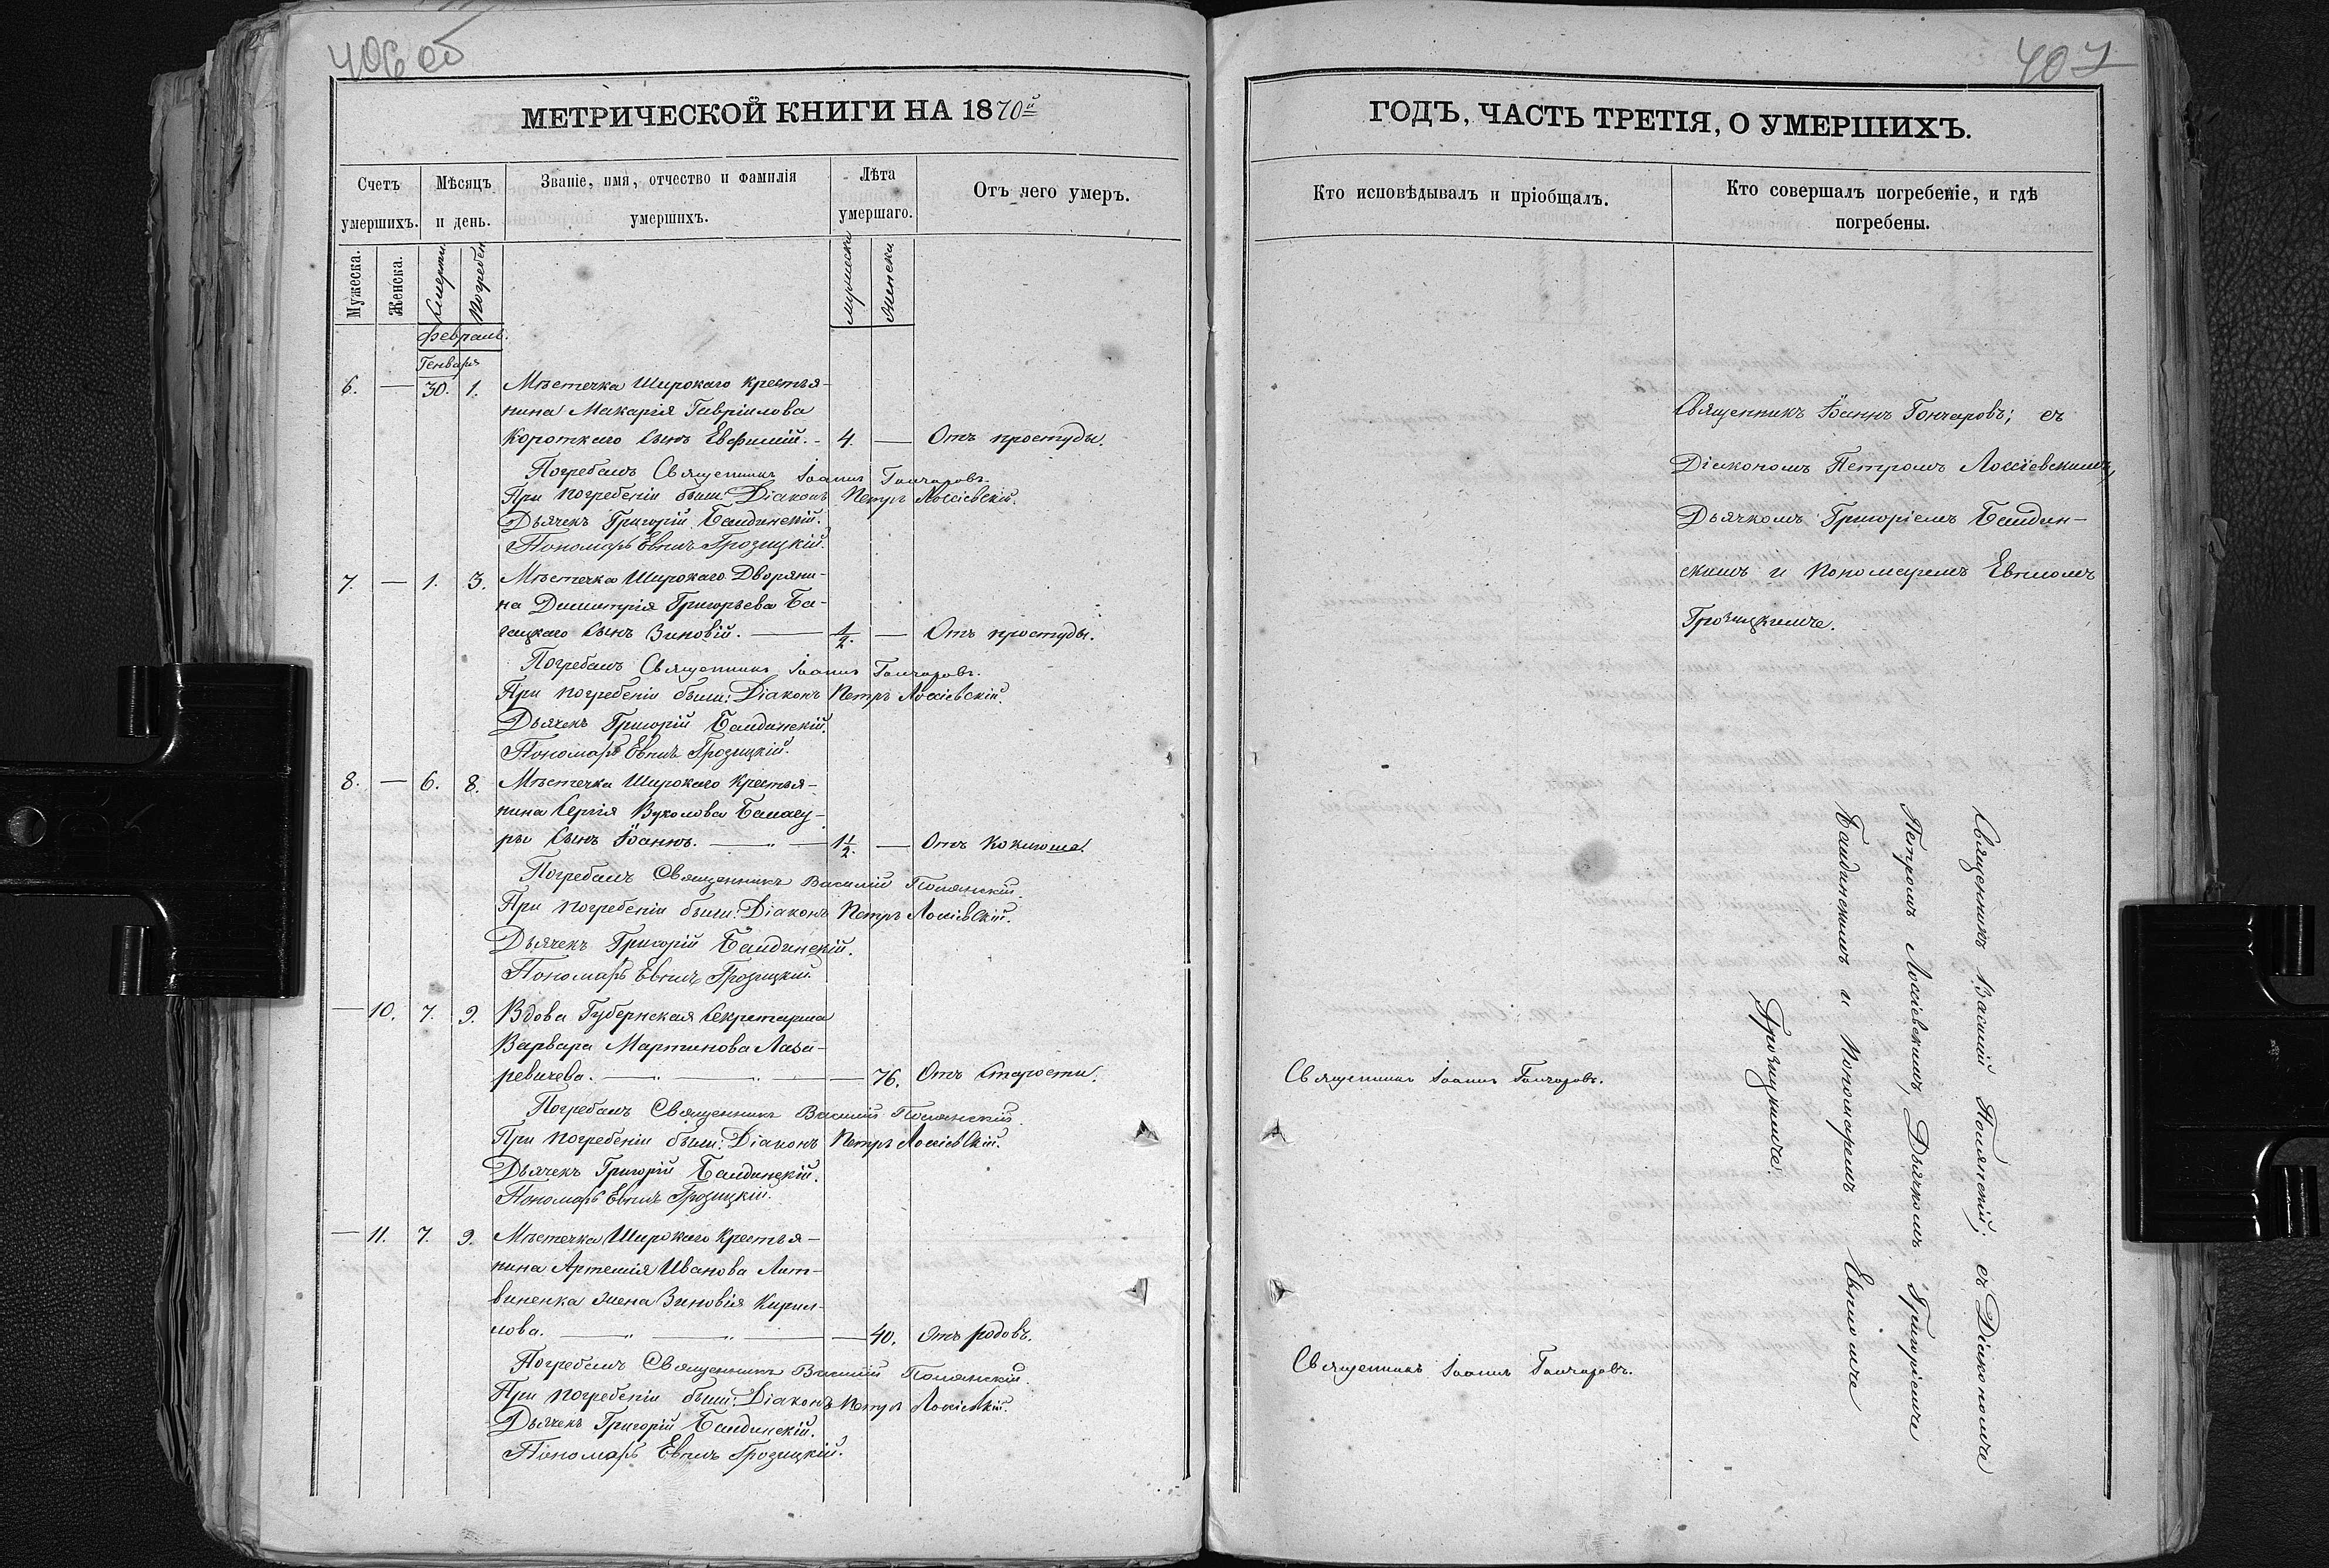 406 об
МЕТРИЧЕСКОЙ КНИГИ НА 1870й
Счетъ умершихъ.
Мѣсяцъ и день.
Званіе, имя, отчество и фамилія умершихъ.
Лѣта умершаго.
Отъ чего умер.
Мужеска.
Женска.
Смерти
Погребен
Мужеска
Женска
Февраль.
Генваря
6. — 30. 1. Мѣстечка Широкаго Крестья-
нина Макарія Гавріилова
Короткаго Сынъ Евфимій. - 4. — Отъ простуды.
Погребалъ Священникъ Іоаннъ Гончаровъ.
При погребеніи были: Діаконъ Петръ Лоссіевскій.
Дьячекъ Григорій Бандинскій.
Пономарь Евпмъ Грозицкій.
7. — 1. 3. Мѣстечка Широкаго Дворяни-
на Димитрія Григорьева Ба-
гацкаго Сынъ Зиновій. — 1/2. — Отъ простуды.
Погребалъ Священникъ Іоаннъ Гончаровъ.
При погребеніи были: Діаконъ Петръ Лоссіевскій.
Дьячекъ Григорій Бандинскій.
Пономарь Грозицкій.
8. — 6. 8. Мѣстечка Широкаго Крестья-
нина Сергія Вуколова
ры Сынъ Іоаннъ. — 1 1/2. — Отъ Коклюша.
Погребалъ Священникъ Василій Полянскій.
При погребеніи были: Діаконъ Петръ Лоссіевскій.
Дьячекъ Григорій Бандинскій.
Пономарь Грозицкій.
— 10. 7. 9. Вдова Губернская Секретарша
Варвара Мартинова Лаза-
ревичева. — 76. Отъ Старости.
Погребалъ Священникъ Василій Полянскій.
При погребеніи были: Діаконъ Петръ Лоссіевскій.
Дьячекъ Григорій Бандинскій.
Пономарь Грозицкій.
— 11. 7. 9. Мѣстечка Широкаго Крестья-
нина Артемія Иванова Лит-
виненка жена Зиновія Кирил-
лова. — 40. Отъ родовъ.
Погребалъ Священникъ Василій Полянскій.
При погребеніи были: Діаконъ Петръ Лоссіевскій.
Дьячекъ Григорій Бандинскій.
Пономарь Грозицкій.
407
ГОДЪ, ЧАСТЬ ТРЕТІЯ, О УМЕРШИХЪ.
Кто исповѣдывалъ и пріобщалъ.
Кто совершалъ погребеніе, и гдѣ
погребены.
Священникъ Іоаннъ Гончаровъ; съ
Діакономъ Петромъ Лоссіевскимъ,
Дьячкомъ Григоріемъ Бандин-
скимъ и Пономаремъ
Грозицкимъ.
Священникъ Іоаннъ Гончаровъ.
Священникъ Іоаннъ Гончаровъ.
Священникъ Василій Полянскій; съ Діакономъ
Петромъ Лоссіевскимъ, Дьячкомъ Григоріемъ
Бандинскимъ и Пономаремъ
Грозицкимъ.